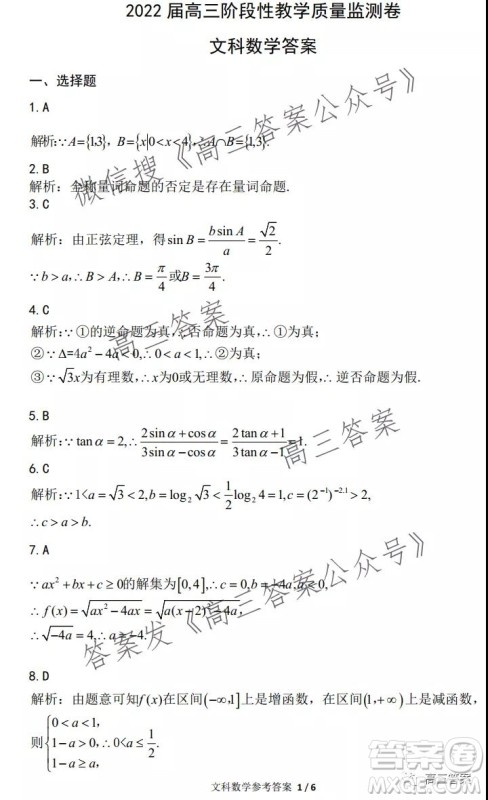 2022 届高三阶段性教学质量监测卷
文科数学答案
一、选择题
1. A
解析:∵A={1,3}, B={x|0<x<4},∴A∩B={1,3}.
2. B
解析: 全称量词命题的否定是存在量词命题.
3. C
解析: 由正弦定理, 得 sin B = b sin A / a = √2 / 2.
∵b>a,∴B>A,∴B=π/4 或B=3π/4.
4. C
解析:∵①的逆命题为真,∴否命题为真,∴①为真;
②∵Δ=4a²−4a<0,∴0<a<1,∴②为真;
③∵√3x为有理数,∴x为0或无理数,∴原命题为假,∴逆否命题为假.
5. B
解析:∵tan α=2,∴(2sin α+cos α)/(3sin α−cos α)=(2tan α+1)/(3tan α−1)=1.
6. C
解析:∵1<a=√3<2, b=log₂√3<1/2 log₂4=1, c=(2⁻¹)^(−2.1)>2,
∴c>a>b.
7. A
∵ax²+bx+c≥0的解集为[0,4],∴c=0,b=−4a,a<0,
∴f(x)=√(ax²−4ax)=√(a(x−2)²−4a),
∴√(−4a)=4,∴a=−4.
8. D
解析: 由题意可知f(x)在区间(−∞,1]上是增函数, 在区间(1,+∞)上是减函数,
则{0<a<1, 1−a>0, 1−a≥a, ∴0<a≤1/2.
文科数学参考答案 1 / 6
微信搜《高三答案公众号》
高三答案
高三答案
答案发《高三答案公众号》
高三答案